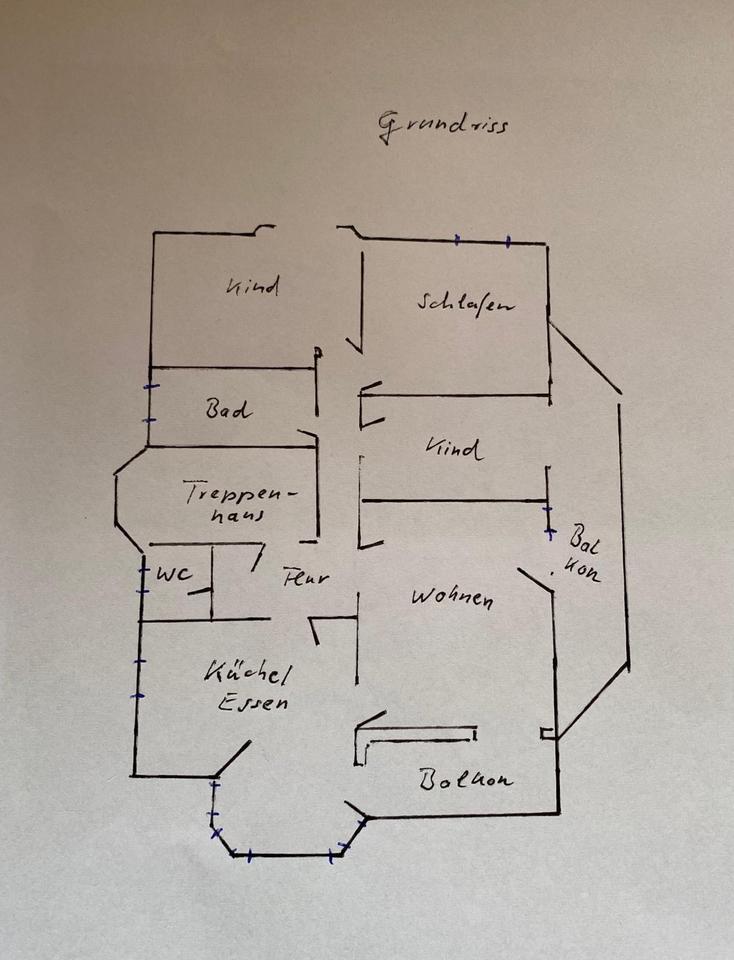 Grundriss
Kind
Schlafen
Bad
Kind
Treppen-
haus
Bal
kon
WC
Flur
Wohnen
Küche/
Essen
Balkon